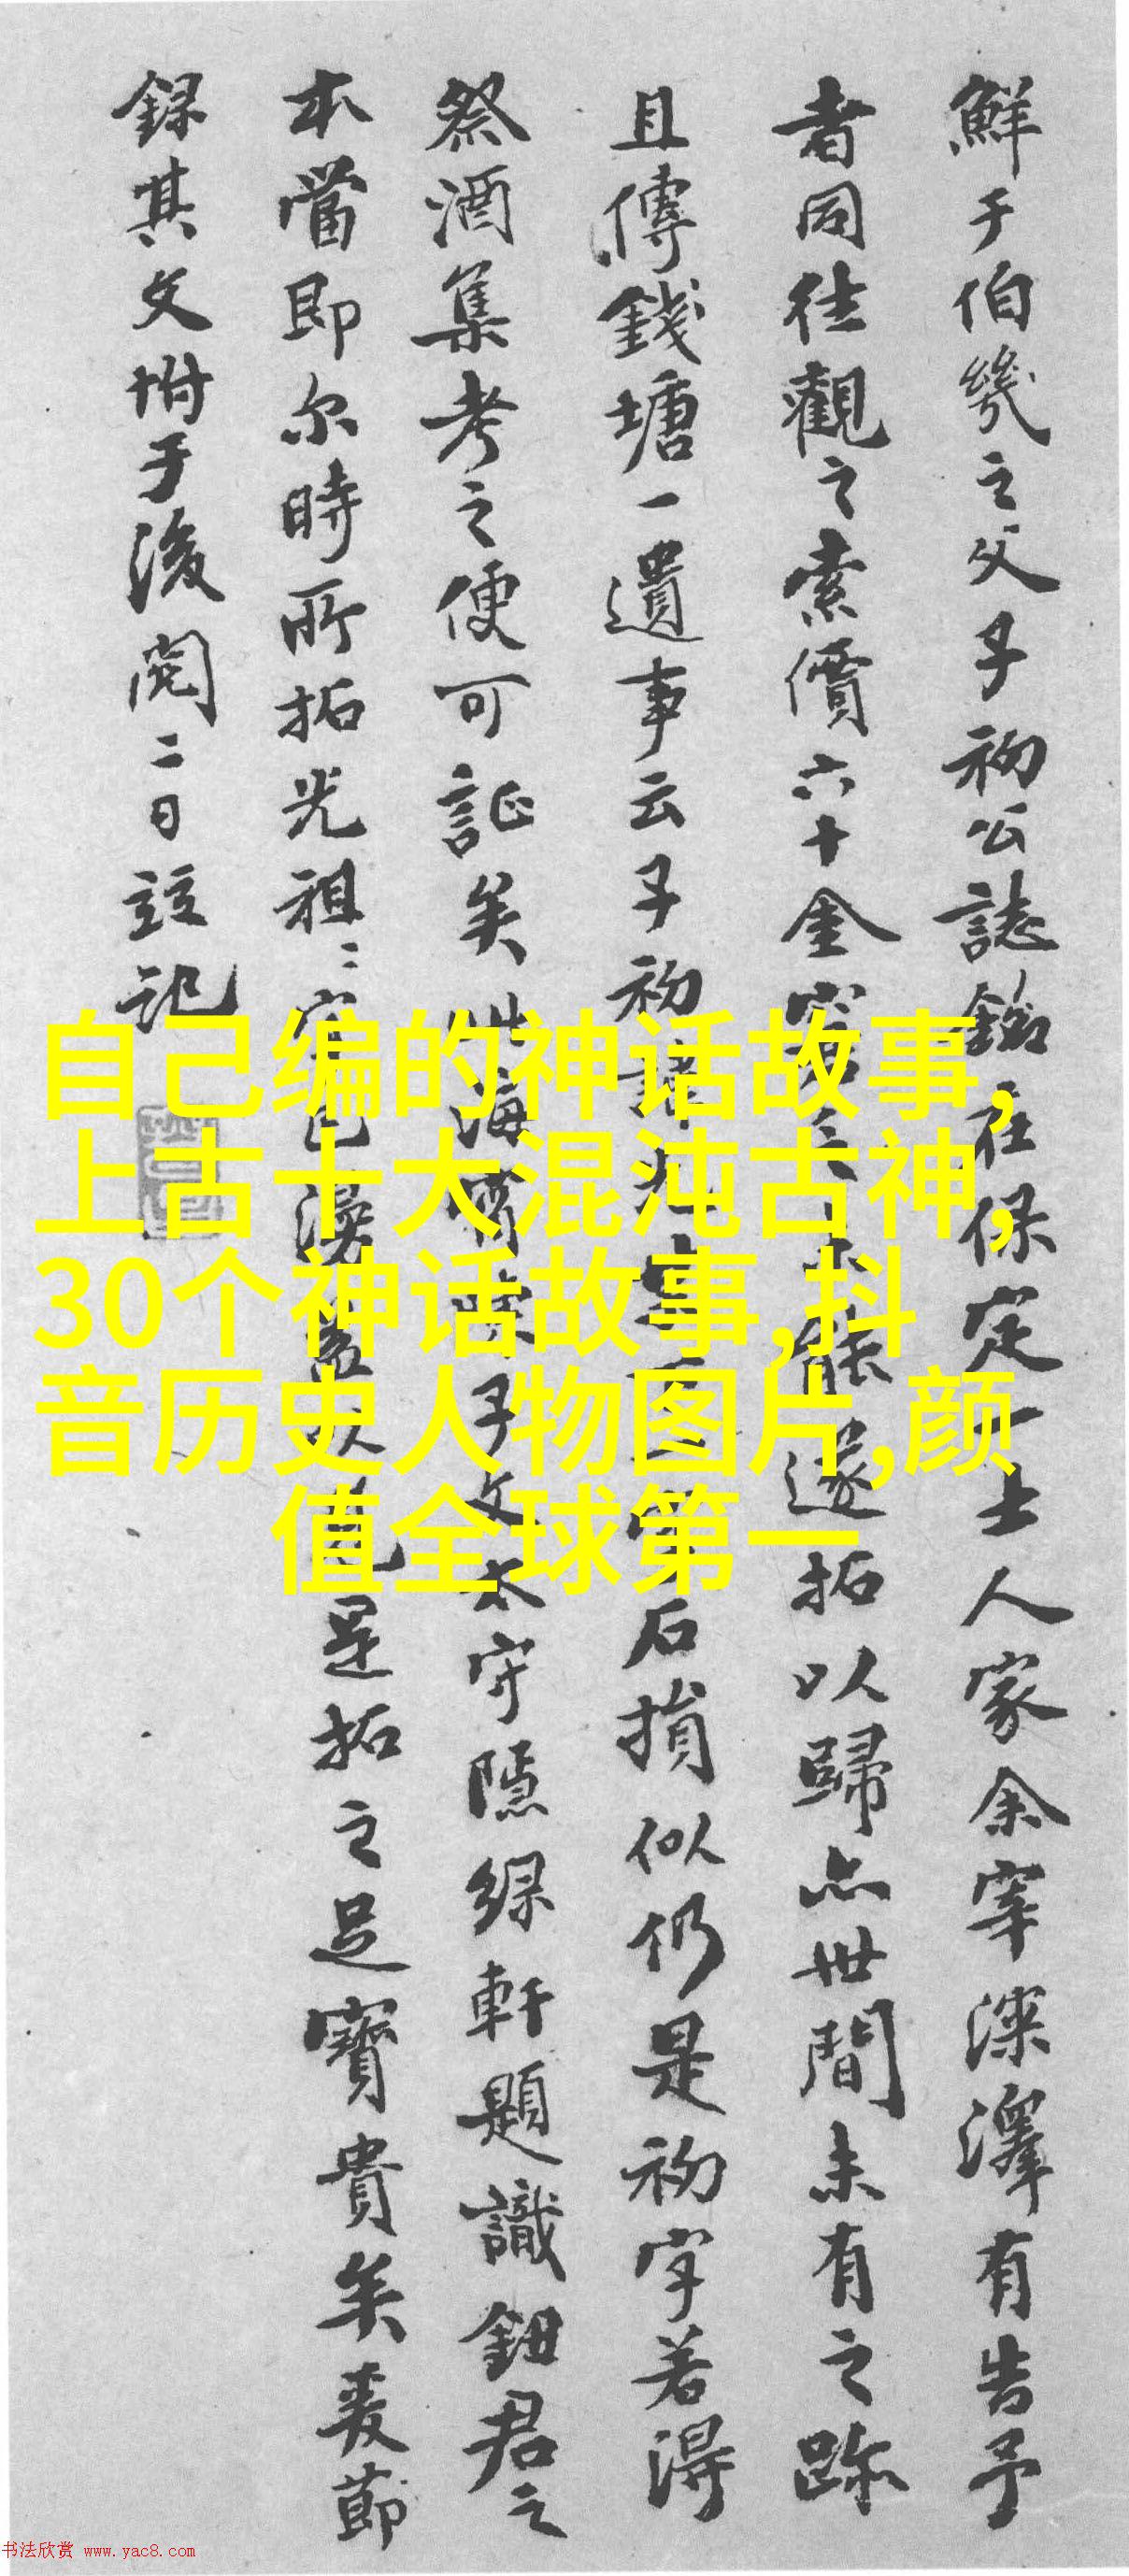 鮮于伯幾之父子初公誌銘在保定一士人家余宰深澤有告予
者同往觀之索價六十金窘 能遂拓以歸亦世間未有之跡
且傳錢塘一遺事云子初諱 石損似仍是初字若得
祭酒集考之便可証矣 海 子文太守隱綠軒題識鈕君之
本當即尔時所拓光祖〻 已漫 是拓之足寶貴矣爰節
錄其文坿于後閱二日誼記
自己编的神话故事,
上古十大混沌古神,
30个神话故事,抖
音历史人物图片,颜
值全球第一
书法欣赏 www.yac8.com